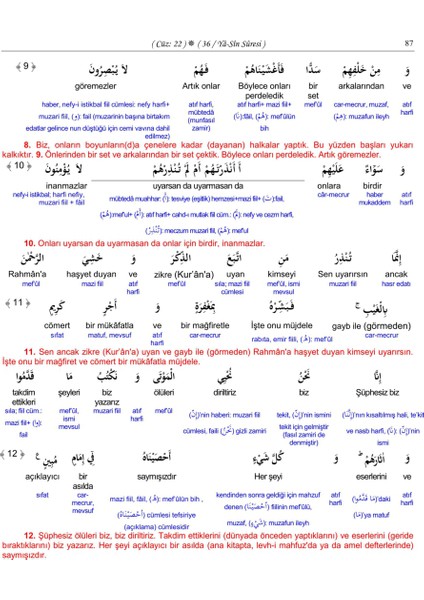 ( Cüz: 22 ) ❋ ( 36 / Yâ-Sîn Sûresi ) 87
وَ مِنْ خَلْفِهِمْ سَدًّا فَأَغْشَيْنَاهُمْ فَهُمْ لاَ يُبْصِرُونَ ﴿ 9 ﴾
ve arkalarından bir set Böylece onları perdeledik Artık onlar göremezler
atıf harfi car-mecrur, muzaf, (هِمْ): muzafun ileyh mef'ûl atıf harfi+ mazi fiil+ (نَا):fâil, (هُمْ): mef'ûlün bih atıf harfi, mübtedâ (munfasıl zamir) haber, nefy-i istikbal fiil cümlesi: nefy harfi+ muzari fiil, (و): fail (muzarinin başına birtakım edatlar gelince nun düştüğü için cemi vavına dahil edilmez)
8. Biz, onların boyunların(d)a çenelere kadar (dayanan) halkalar yaptık. Bu yüzden başları yukarı
kalkıktır. 9. Önlerinden bir set ve arkalarından bir set çektik. Böylece onları perdeledik. Artık göremezler.
وَ سَوَاءٌ عَلَيْهِمْ أَ أَنْذَرْتَهُمْ أَمْ لَمْ تُنْذِرْهُمْ لاَ يُؤْمِنُونَ ﴿ 10 ﴾
ve birdir onlara uyarsan da uyarmasan da inanmazlar
atıf harfi haber mukaddem câr-mecrur mübtedâ muahhar: (أ): tesviye (eşitlik) hemzesi+mazi fiil+ (تَ):fail, (هُمْ):mef'ul+ (أَمْ): atıf harfi+ cahd-ı mutlak fiil cüm.: (لَمْ): nefy ve cezm harfi, (تُنْذِرْ):meczum muzari fiil, (هُمْ): mef'ul nefy-i istikbal: harfi nefiy, muzari fiil + fâil
10. Onları uyarsan da uyarmasan da onlar için birdir, inanmazlar.
إِنَّمَا تُنْذِرُ مَنِ اتَّبَعَ الذِّكْرَ وَ خَشِيَ الرَّحْمٰنَ
ancak Sen uyarırsın kimseyi uyan zikre (Kur'ân'a) ve haşyet duyan Rahmân'a
hasr edatı muzari fiil mef'ül, ismi mevsul sıla; mazi fiil cümlesi mef'ûl atıf harfi mazi fiil mef'ûl
بِالْغَيْبِ ۚ فَبَشِّرْهُ بِمَغْفِرَةٍ وَ أَجْرٍ كَرِيمٍ ﴿ 11 ﴾
gayb ile (görmeden) İşte onu müjdele bir mağfiretle ve bir mükâfatla cömert
car-mecrur rabıta, emir fiili, (هُ): mef'ul car-mecrur atıf harfi matuf, mevsuf sıfat
11. Sen ancak zikre (Kur'ân'a) uyan ve gayb ile (görmeden) Rahmân'a haşyet duyan kimseyi uyarırsın.
İşte onu bir mağfiret ve cömert bir mükâfatla müjdele.
إِنَّا نَحْنُ نُحْيِي الْمَوْتَى وَ نَكْتُبُ مَا قَدَّمُوا
Şüphesiz biz biz diriltiriz ölüleri ve biz yazarız şeyleri takdim ettikleri
(إِنَّنَا)'nın kısıltılmış hali, te'kit ve nasb harfi, (نَا): (إِنَّ)'nin ismi tekit, (إِنَّ)'nin ismini tekit için gelmiştir (fasıl zamiri de denmiştir) (إِنَّ)'nin haberi: muzari fiil cümlesi, faili (نَحْنُ) gizli zamiri mef'ûl atıf harfi muzari fiil mef'ül, ismi mevsul sıla; fiil cüm.: mazi fiil+ (و): fail
وَ آثَارَهُمْ ۘ وَ كُلَّ شَيْءٍ أَحْصَيْنَاهُ فِي إِمَامٍ مُبِينٍ ۟ ﴿ 12 ﴾
ve eserlerini ve Her şeyi saymışızdır bir asılda açıklayıcı
atıf harfi (مَا قَدَّمُوا)'daki (مَا)'ya matuf atıf harfi kendinden sonra geldiği için mahzuf denen (أَحْصَيْنَا) fiilinin mef'ûlü, muzaf, (شَيْءٍ): muzafun ileyh mazi fiil, fâil, (هُ): mef'ûlün bih, (أَحْصَيْنَاهُ) cümlesi tefsiriye (açıklama) cümlesidir car-mecrur, mevsuf sıfat
12. Şüphesiz ölüleri biz, biz diriltiriz. Takdim ettiklerini (dünyada önceden yaptıklarını) ve eserlerini (geride
bıraktıklarını) biz yazarız. Her şeyi açıklayıcı bir asılda (ana kitapta, levh-i mahfuz'da ya da amel defterlerinde)
saymışızdır.